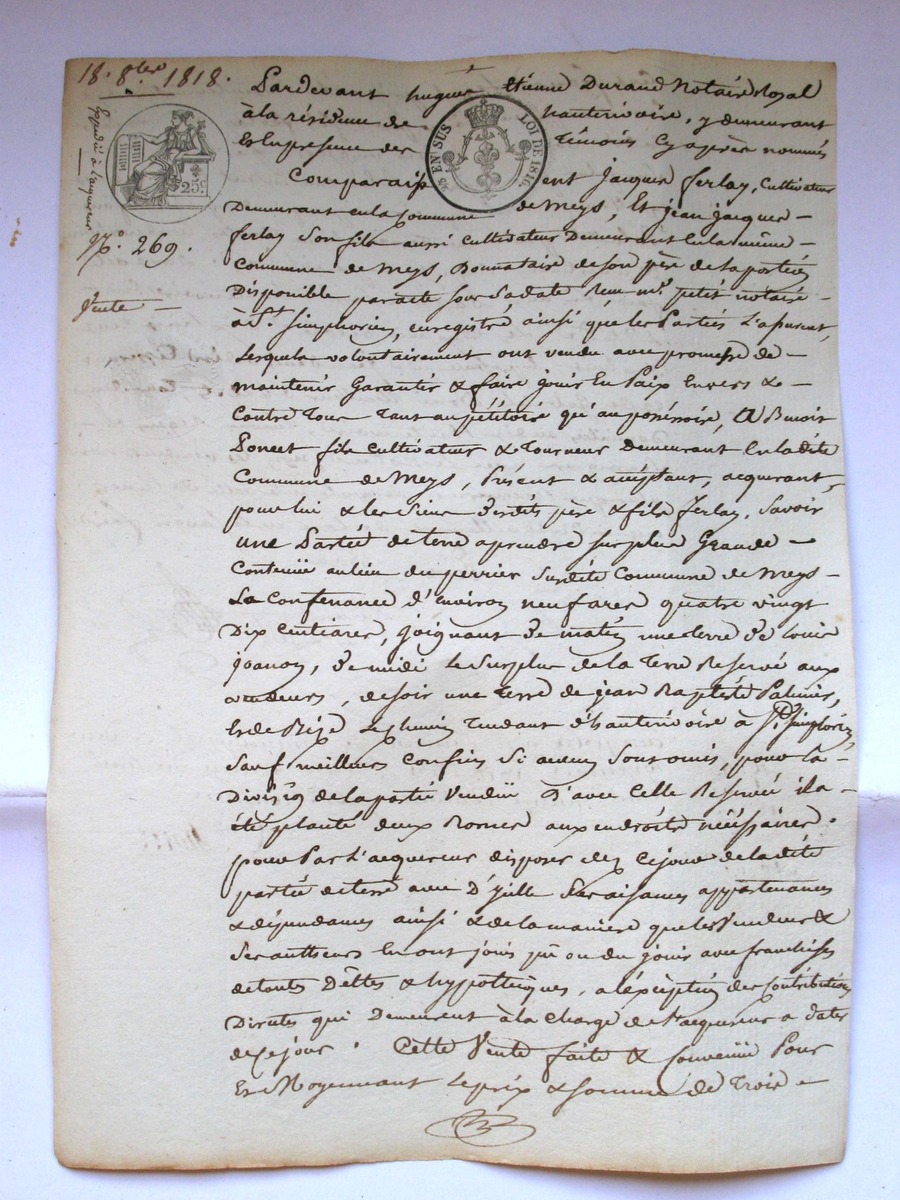 18. 8bre 1818.
Expédié à l'acquéreur
25c
N°. 269.
Vente —
EN SUS LOI DE 1816
Pardevant hugue etienne Durand Notaire Royal
à la résidence de hauterivoire, y demeurant
Et En presence des témoins Cy après nommés
Comparaissent Jacques ferlay, Cultivateur
Demeurant en la Commune de Meys, Et jean jacques —
ferlay Son fils aussi Cultivateur Demeurant En la même —
Commune de Meys, Donnataire de Son père de la portion
Disponible par acte Sous Sa date Reçu Me. petit notaire —
à St. Simphorien, enregistré ainsi que les Parties L'assurent,
Lesquels volontairement ont vendu avec promesse de —
maintenir Garantir & faire jouir En Paix Envers & —
Contre Tous Tant au pétitoire qu'au possessoire, A Benoit
Poncet fils Cultivateur & Tourneur Demeurant En la dite
Commune de Meys, Présent & acceptant, acquerant,
pour lui & les Siens Desdits père & fils ferlay, Savoir
une Partie de terre a prendre Sur plus Grande —
Contenue au lieu du perrier Susdite Commune de Meys —
La Contenance d'Environ neuf ares quatre vingt
Dix Centiares, joignant De matin une terre De Louis
joanon, De midi Le Surplus de la Terre Reservé aux
vendeurs, de Soir une Terre de jean Baptiste Palmier,
Et de Bize Le chemin Tendant d'hauterivoire à St. Simphorien,
Sauf meilleurs Confins Si aucuns Sont omis, pour la —
Division de la partie Vendue D'avec Celle Reservée il a —
été planté deux Bornes aux endroits nécessaires.
pour Par L'acquereur disposer dez Ce jour de la dite
partie de terre avec D'ycelle Ses aisances appartenances
& dépendances ainsi & de la maniere que les Vendeurs &
Ses autheurs En ont jouis pû ou du jouir avec franchises
de toutes Dettes & hypotheques, a l'exception des Contributions
Directes qui Demeurent à la Charge de l'acquereur a dater
de Ce jour. Cette Vente faite & Convenue Pour
Et Moyennant Le prix & Somme de Trois —